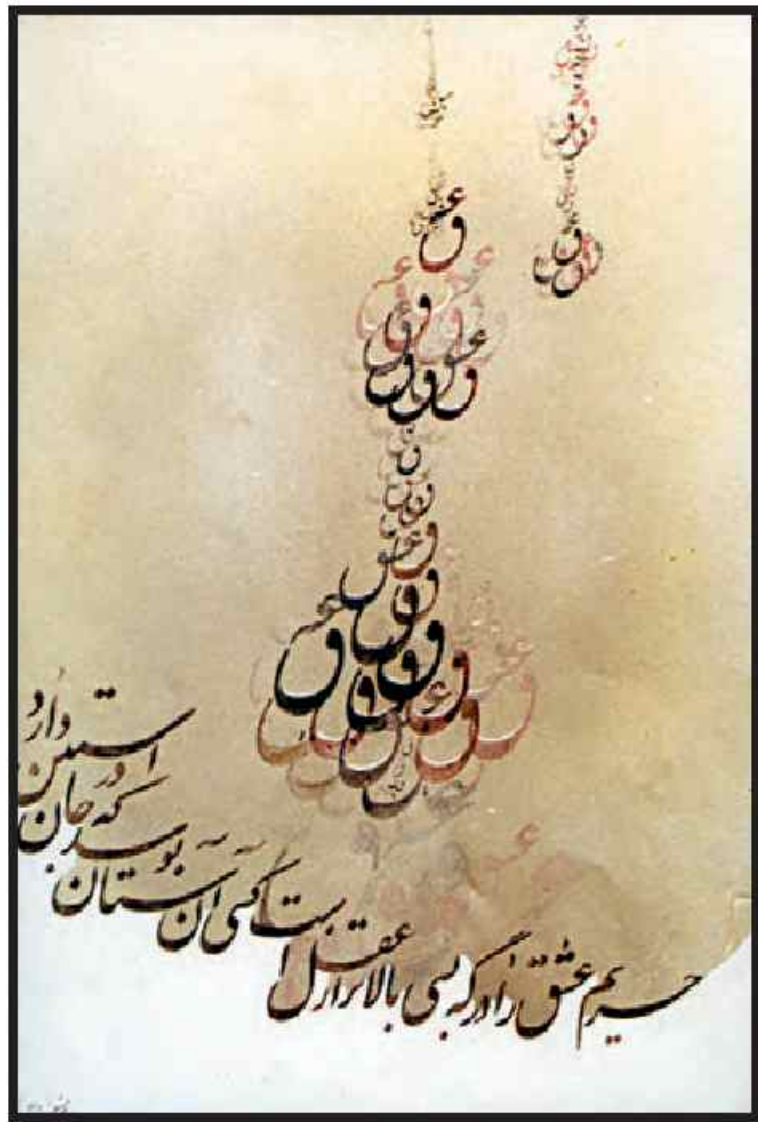 عشق
عشق
عشق
عشق
حریم عشق را درگه بسی بالاتر از عقل است کسی آن آستان بوسد که جان در آستین دارد